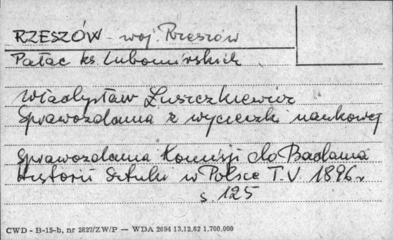 RZESZÓW - woj. Rzeszów
Pałac ks. Lubomirskich
Władysław Łuszczkiewicz
Sprawozdania z wycieczki naukowej
Sprawozdania Komisji do Badania
Historii Sztuki w Polsce T.V. 1896r.
s. 125
CWD - B-15-b, nr 2827/ZW/P — WDA 2694 13.12.62 1.700.000